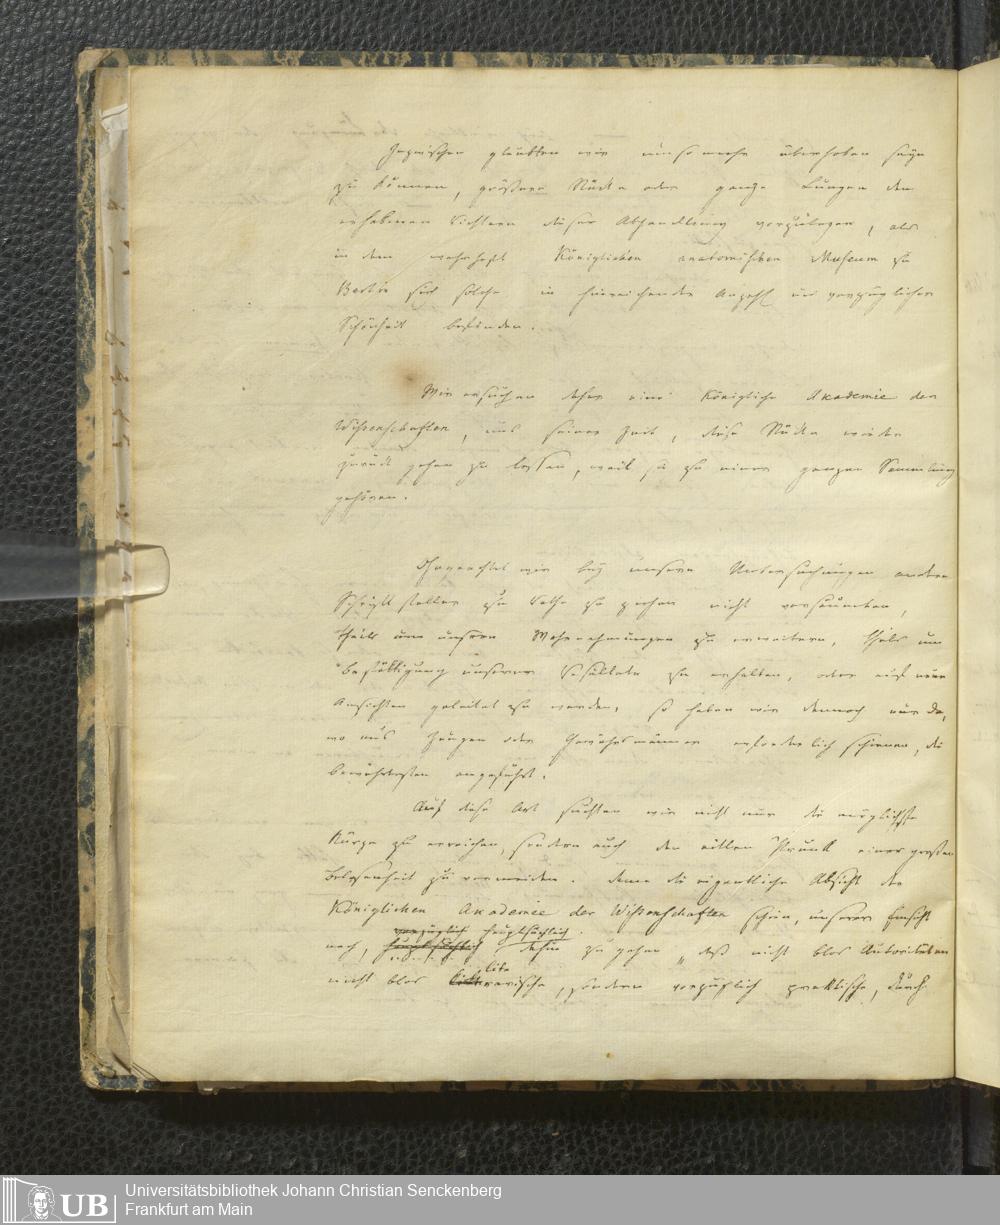 Inzwischen glaubten wir um so mehr überhoben seyn
zu können, größere Stücke oder ganze Lungen den
erhabenen Richtern dieser Abhandlung vorzulegen, als
in dem wahrhaft Königlichen anatomischen Museum zu
Berlin sich solche in hinreichender Anzahl und vorzüglicher
Schönheit befinden.
Wir ersuchen daher eine Königliche Akademie der
Wissenschaften, uns seiner Zeit, diese Stücke wieder
zurück gehen zu lassen, weil sie zu einer ganzen Sammlung
gehören.
Ohngeachtet wir bey unsern Untersuchungen andere
Schriftsteller zu Rathe zu ziehen nicht versäumten,
theils um unsere Wahrnehmungen zu erweitern, theils um
Bestättigung unserer Resultate zu erhalten, oder auf neue
Ansichten geleitet zu werden, so haben wir dennoch nur da,
wo uns Zeugen oder Gewährsmänner erforderlich schienen, die
bewährtesten angeführt.
Auf diese Art suchten wir nicht nur die möglichste
Kürze zu erreichen, sondern auch den eitlen Prunk einer großen
Belesenheit zu vermeiden. Denn die eigentliche Absicht der
Königlichen Akademie der Wissenschaften schien, unserer Einsicht
vorzüglich hauptsächlich
nach, hauptsächlich dahin zu gehen, daß nicht blos Autoritäten
lite
nicht blos rarische, sondern vorzüglich praktische, durch
Universitätsbibliothek Johann Christian Senckenberg
Frankfurt am Main
UB